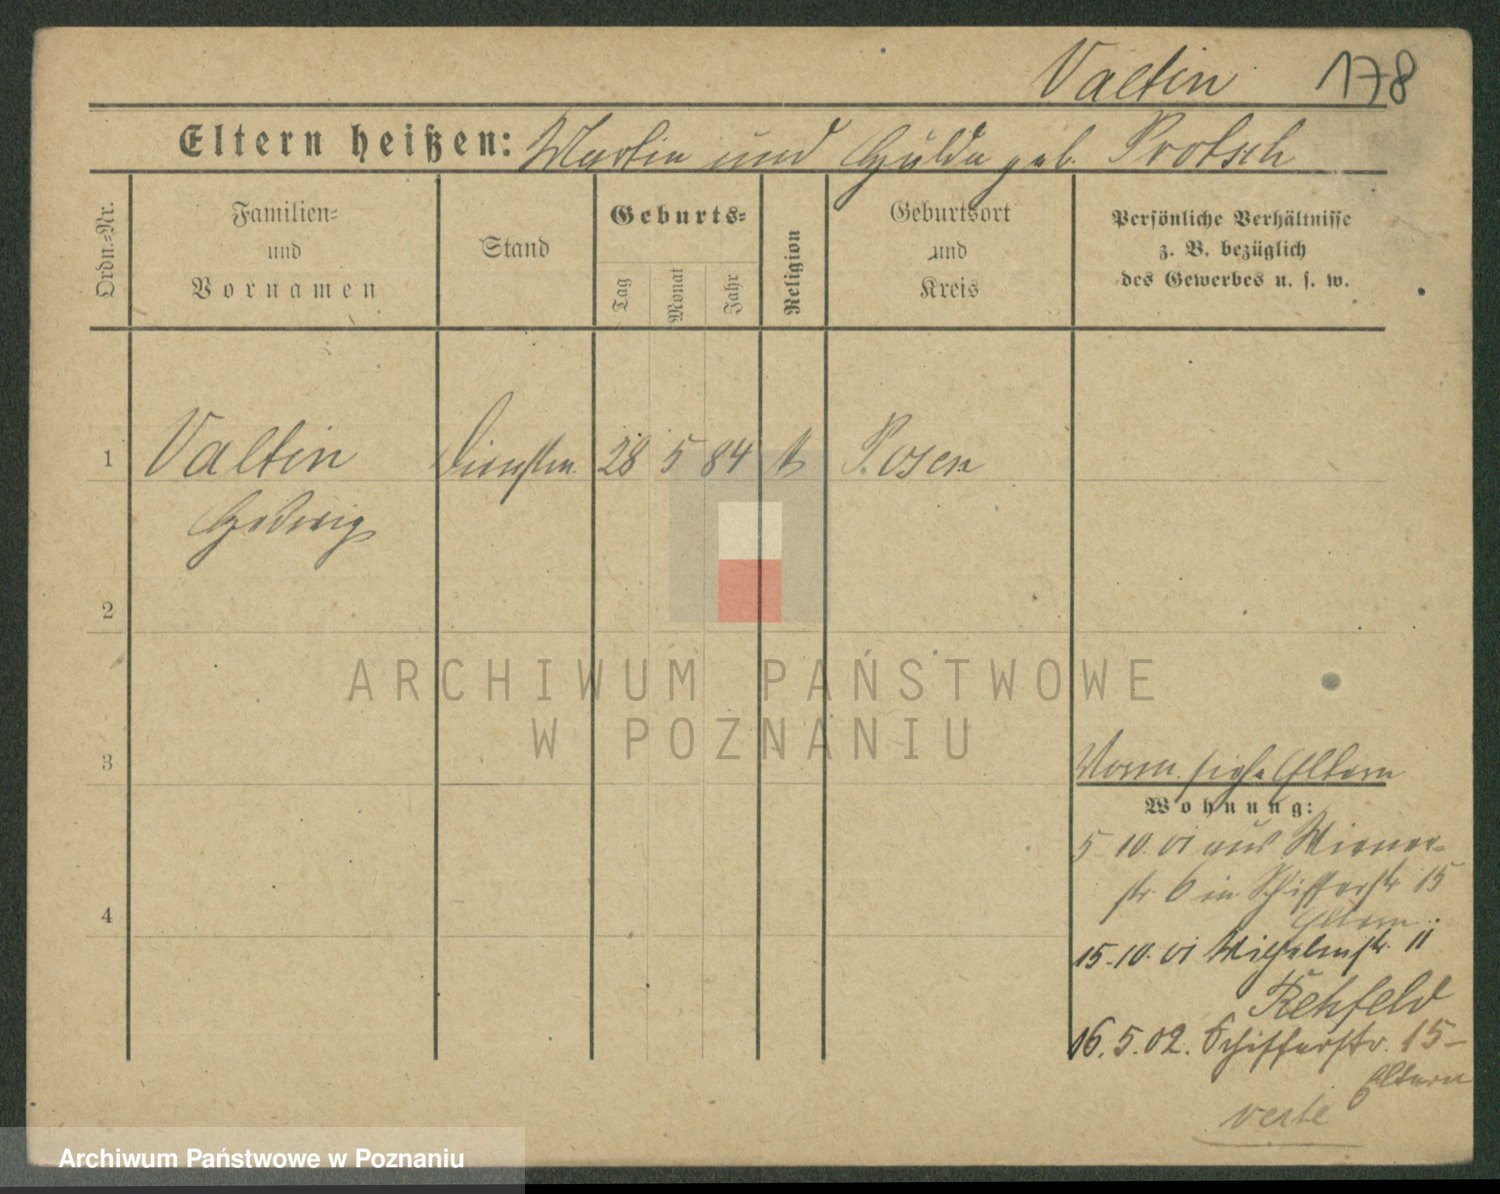 Valtin 178
Eltern heißen: Martin und Hulda geb. Protsch
Ordn.=Nr.
Familien=
und
Vornamen
Stand
Geburts=
Tag
Monat
Jahr
Religion
Geburtsort
und
Kreis
Persönliche Verhältnisse
z. B. bezüglich
des Gewerbes u. s. w.
1 Valtin Dienstm. 28 5 84 Posen
Hedwig
2
3
Vorm. siehe Eltern
Wohnung:
5-10.01 aus Wiener-
str. 6 in Schifferstr 15
Eltern.
4
15-10.01 Wilhelmstr. 11
Rehfeld
16.5.02. Schifferstr. 15-
Eltern
verte
ARCHIWUM PAŃSTWOWE
W POZNANIU
Archiwum Państwowe w Poznaniu